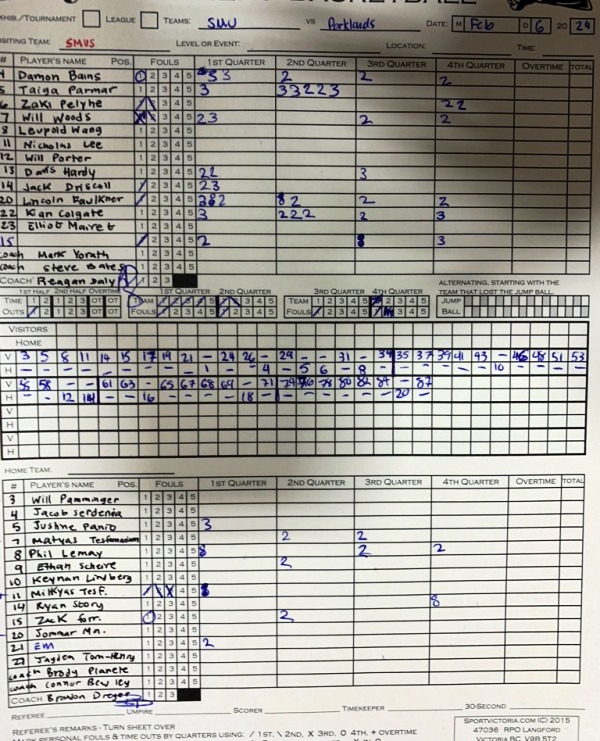 EXHIB./TOURNAMENT LEAGUE TEAMS: SMU VS Parklands DATE: M Feb 0 6 20 24
VISITING TEAM: SMUS LEVEL OR EVENT: LOCATION: TIME:
# PLAYER'S NAME POS. FOULS 1ST QUARTER 2ND QUARTER 3RD QUARTER 4TH QUARTER OVERTIME TOTAL
4 Damon Bains 1 2 3 4 5 3 3 2 2 2
5 Taiga Parmar 1 2 3 4 5 3 33223
6 Zaki Pelyhe 3 4 5 22
7 Will Woods 3 4 5 23 2 2
8 Leupold Wang 1 2 3 4 5
11 Nicholas Lee 1 2 3 4 5
12 Will Porter 1 2 3 4 5
13 Davis Hardy 1 2 3 4 5 22 3
14 Jack Driscoll 2 3 4 5 23
20 Lincoln Faulkner 2 3 4 5 2 2 2 2
22 Kian Colgate 2 3 4 5 3 222 2 3
23 Elliot Maivet 1 2 3 4 5
15 2 3 4 5 2 3
Coach Mark Yorath
Coach Steve Bates
COACH Reagan Daly 2 3
1ST HALF 2ND HALF OVERTIME 1ST QUARTER 2ND QUARTER 3RD QUARTER 4TH QUARTER ALTERNATING, STARTING WITH THE TEAM THAT LOST THE JUMP BALL.
TIME 1 2 1 2 3 OT OT TEAM 3 4 5 TEAM 1 2 3 4 5 2 3 4 5 JUMP
OUTS 2 1 2 3 OT OT FOULS 3 4 5 FOULS 2 3 4 5 3 4 5 BALL
VISITORS
HOME
V 3 5 8 11 14 15 17 19 21 - 24 26 - 29 - - 31 - 34 35 37 39 41 43 - 46 48 51 53
H - - - - - - - - - 1 - - 4 - 5 6 - 8 - - - - - - 10 - - - -
V 56 58 - - 61 63 - 65 67 68 69 - 71 74 76 78 80 82 84 - 87
H - - 12 14 - - 16 - - - - 18 - - - - - - - 20 -
V
H
V
H
HOME TEAM:
# PLAYER'S NAME POS. FOULS 1ST QUARTER 2ND QUARTER 3RD QUARTER 4TH QUARTER OVERTIME TOTAL
3 Will Pamminger 1 2 3 4 5
4 Jacob Serdenia 1 2 3 4 5
5 Justine Panio 1 2 3 4 5 3
7 Matyas 1 2 3 4 5 2 2
8 Phil Lemay 1 2 3 4 5 2 2
9 Ethan Scheive 1 2 3 4 5 2
10 Keynan Lindberg 1 2 3 4 5
11 Milkyas Tes F. 4 5
14 Ryan Story 1 2 3 4 5 8
15 Zack Forr. 2 3 4 5 2
20 Jommar Mn. 1 2 3 4 5
21 EM 1 2 3 4 5 2
27 Jayden Tom-Henry 1 2 3 4 5
Coach Brody Planete 1 2 3 4 5
Coach Connor Bewley 1 2 3 4 5
COACH Brandon Dreger 1 2 3
REFEREE UMPIRE SCORER TIMEKEEPER 30-SECOND
REFEREE'S REMARKS - TURN SHEET OVER
MARK PERSONAL FOULS & TIME OUTS BY QUARTERS USING: / 1ST, \ 2ND, X 3RD, O 4TH, + OVERTIME
SPORTVICTORIA.COM (C) 2015
47036 RPO LANGFORD
VICTORIA BC V9B 5T2